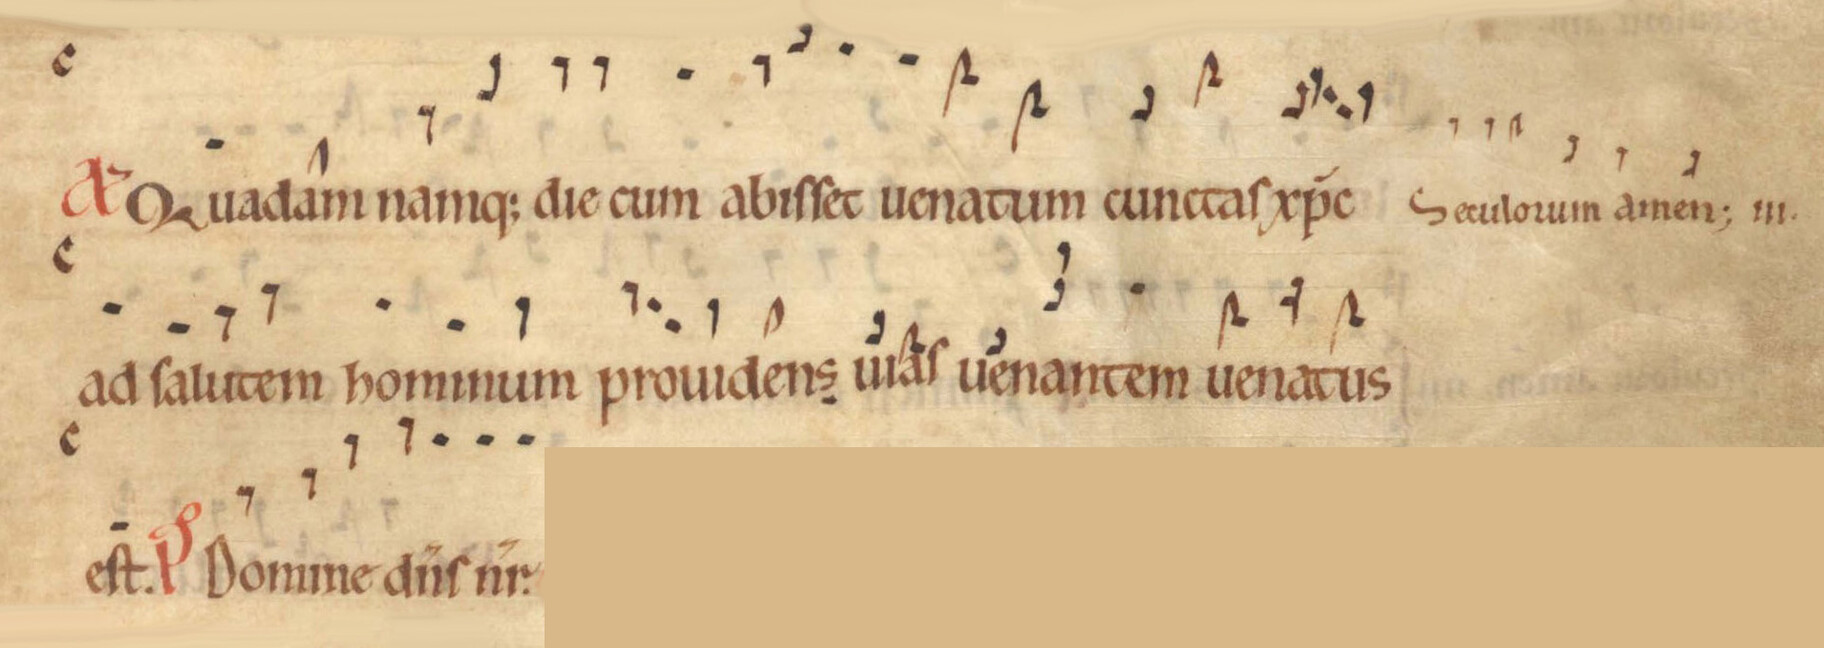 c
A Quadam namq; die cum abisset uenatum cunctas xp̄c Seculorum amen; iii.
c
ad salutem hominum prouidens uias uenantem uenatus
c
est. P Domine dn̄s nr̄.